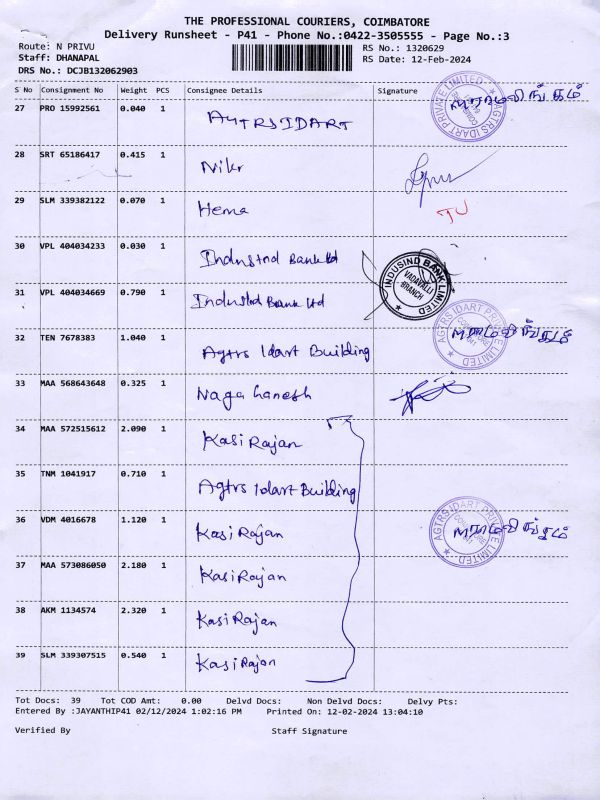 THE PROFESSIONAL COURIERS, COIMBATORE
Delivery Runsheet - P41 - Phone No.:0422-3505555 - Page No.:3
Route: N PRIVU RS No.: 1320629
Staff: DHANAPAL RS Date: 12-Feb-2024
DRS No.: DCJB132062903
S No Consignment No Weight PCS Consignee Details Signature
27 PRO 15992561 0.040 1 AGTRSIDART
28 SRT 65186417 0.415 1
29 SLM 339382122 0.070 1 Hema
30 VPL 404034233 0.030 1 Indusind Bank ltd
31 VPL 404034669 0.790 1 Indusind Bank ltd
INDUSIND BANK LIMITED
VADAVALLI
BRANCH
32 TEN 7678383 1.040 1 Agtrs Idart Building
AGTRS IDART PRIVATE LIMITED
33 MAA 568643648 0.325 1 Naga Ganesh
34 MAA 572515612 2.090 1 Kasi Rajan
35 TNM 1041917 0.710 1 Agtrs Idart Building
36 VDM 4016678 1.120 1 Kasi Rajan
AGTRS IDART PRIVATE LIMITED
37 MAA 573086050 2.180 1 Kasi Rajan
38 AKM 1134574 2.320 1 Kasi Rajan
39 SLM 339307515 0.540 1 Kasi Rajan
Tot Docs: 39 Tot COD Amt: 0.00 Delvd Docs: Non Delvd Docs: Delvy Pts:
Entered By :JAYANTHIP41 02/12/2024 1:02:16 PM Printed On: 12-02-2024 13:04:10
Verified By Staff Signature